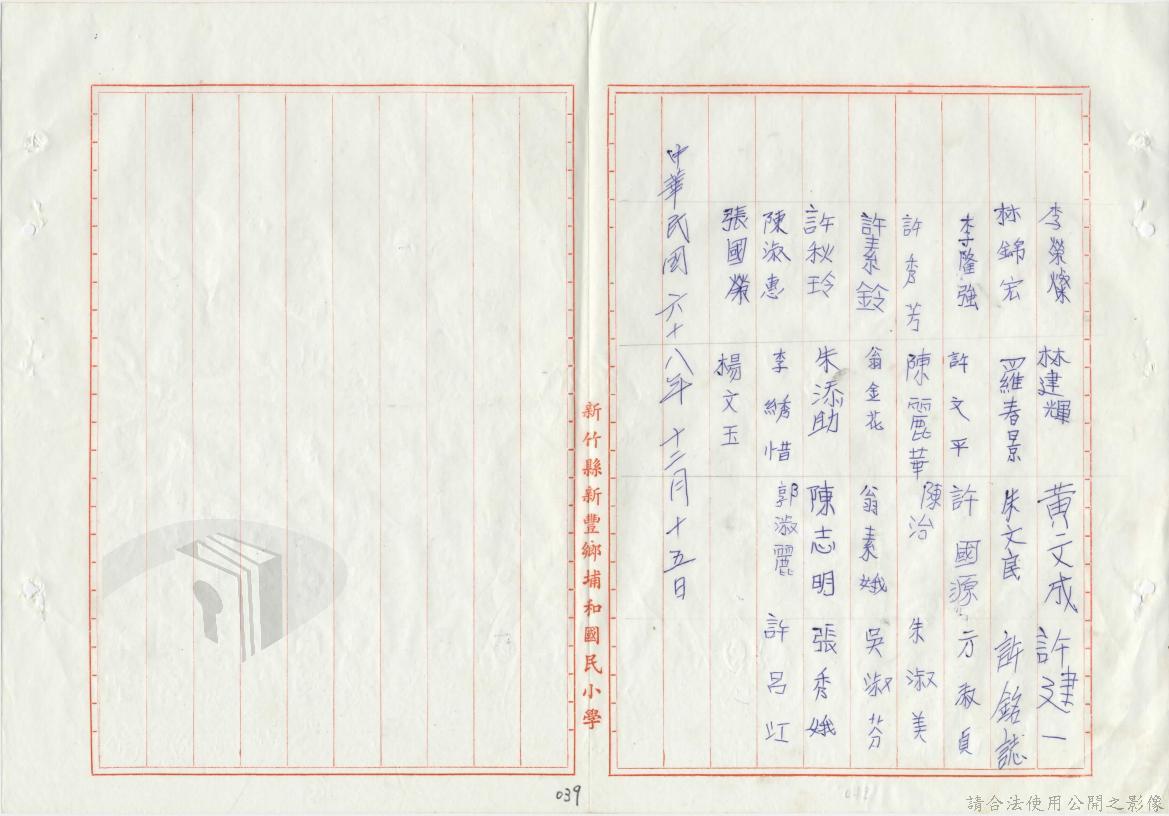 李榮燦 林建輝 黃文成 許建一
林錦宏 羅春景 朱文良 許銘誌
李隆強 許文平 許國源 方淑貞
許秀芳 陳麗華 陳治 朱淑美
許素鈴 翁金花 翁素娥 吳淑芬
許秋玲 朱添助 陳志明 張秀娥
陳淑惠 李綉惜 郭淑麗 許呂
張國榮 楊文玉
中華民國六十八年十二月十五日
新竹縣新豐鄉埔和國民小學
039
請合法使用公開之影像